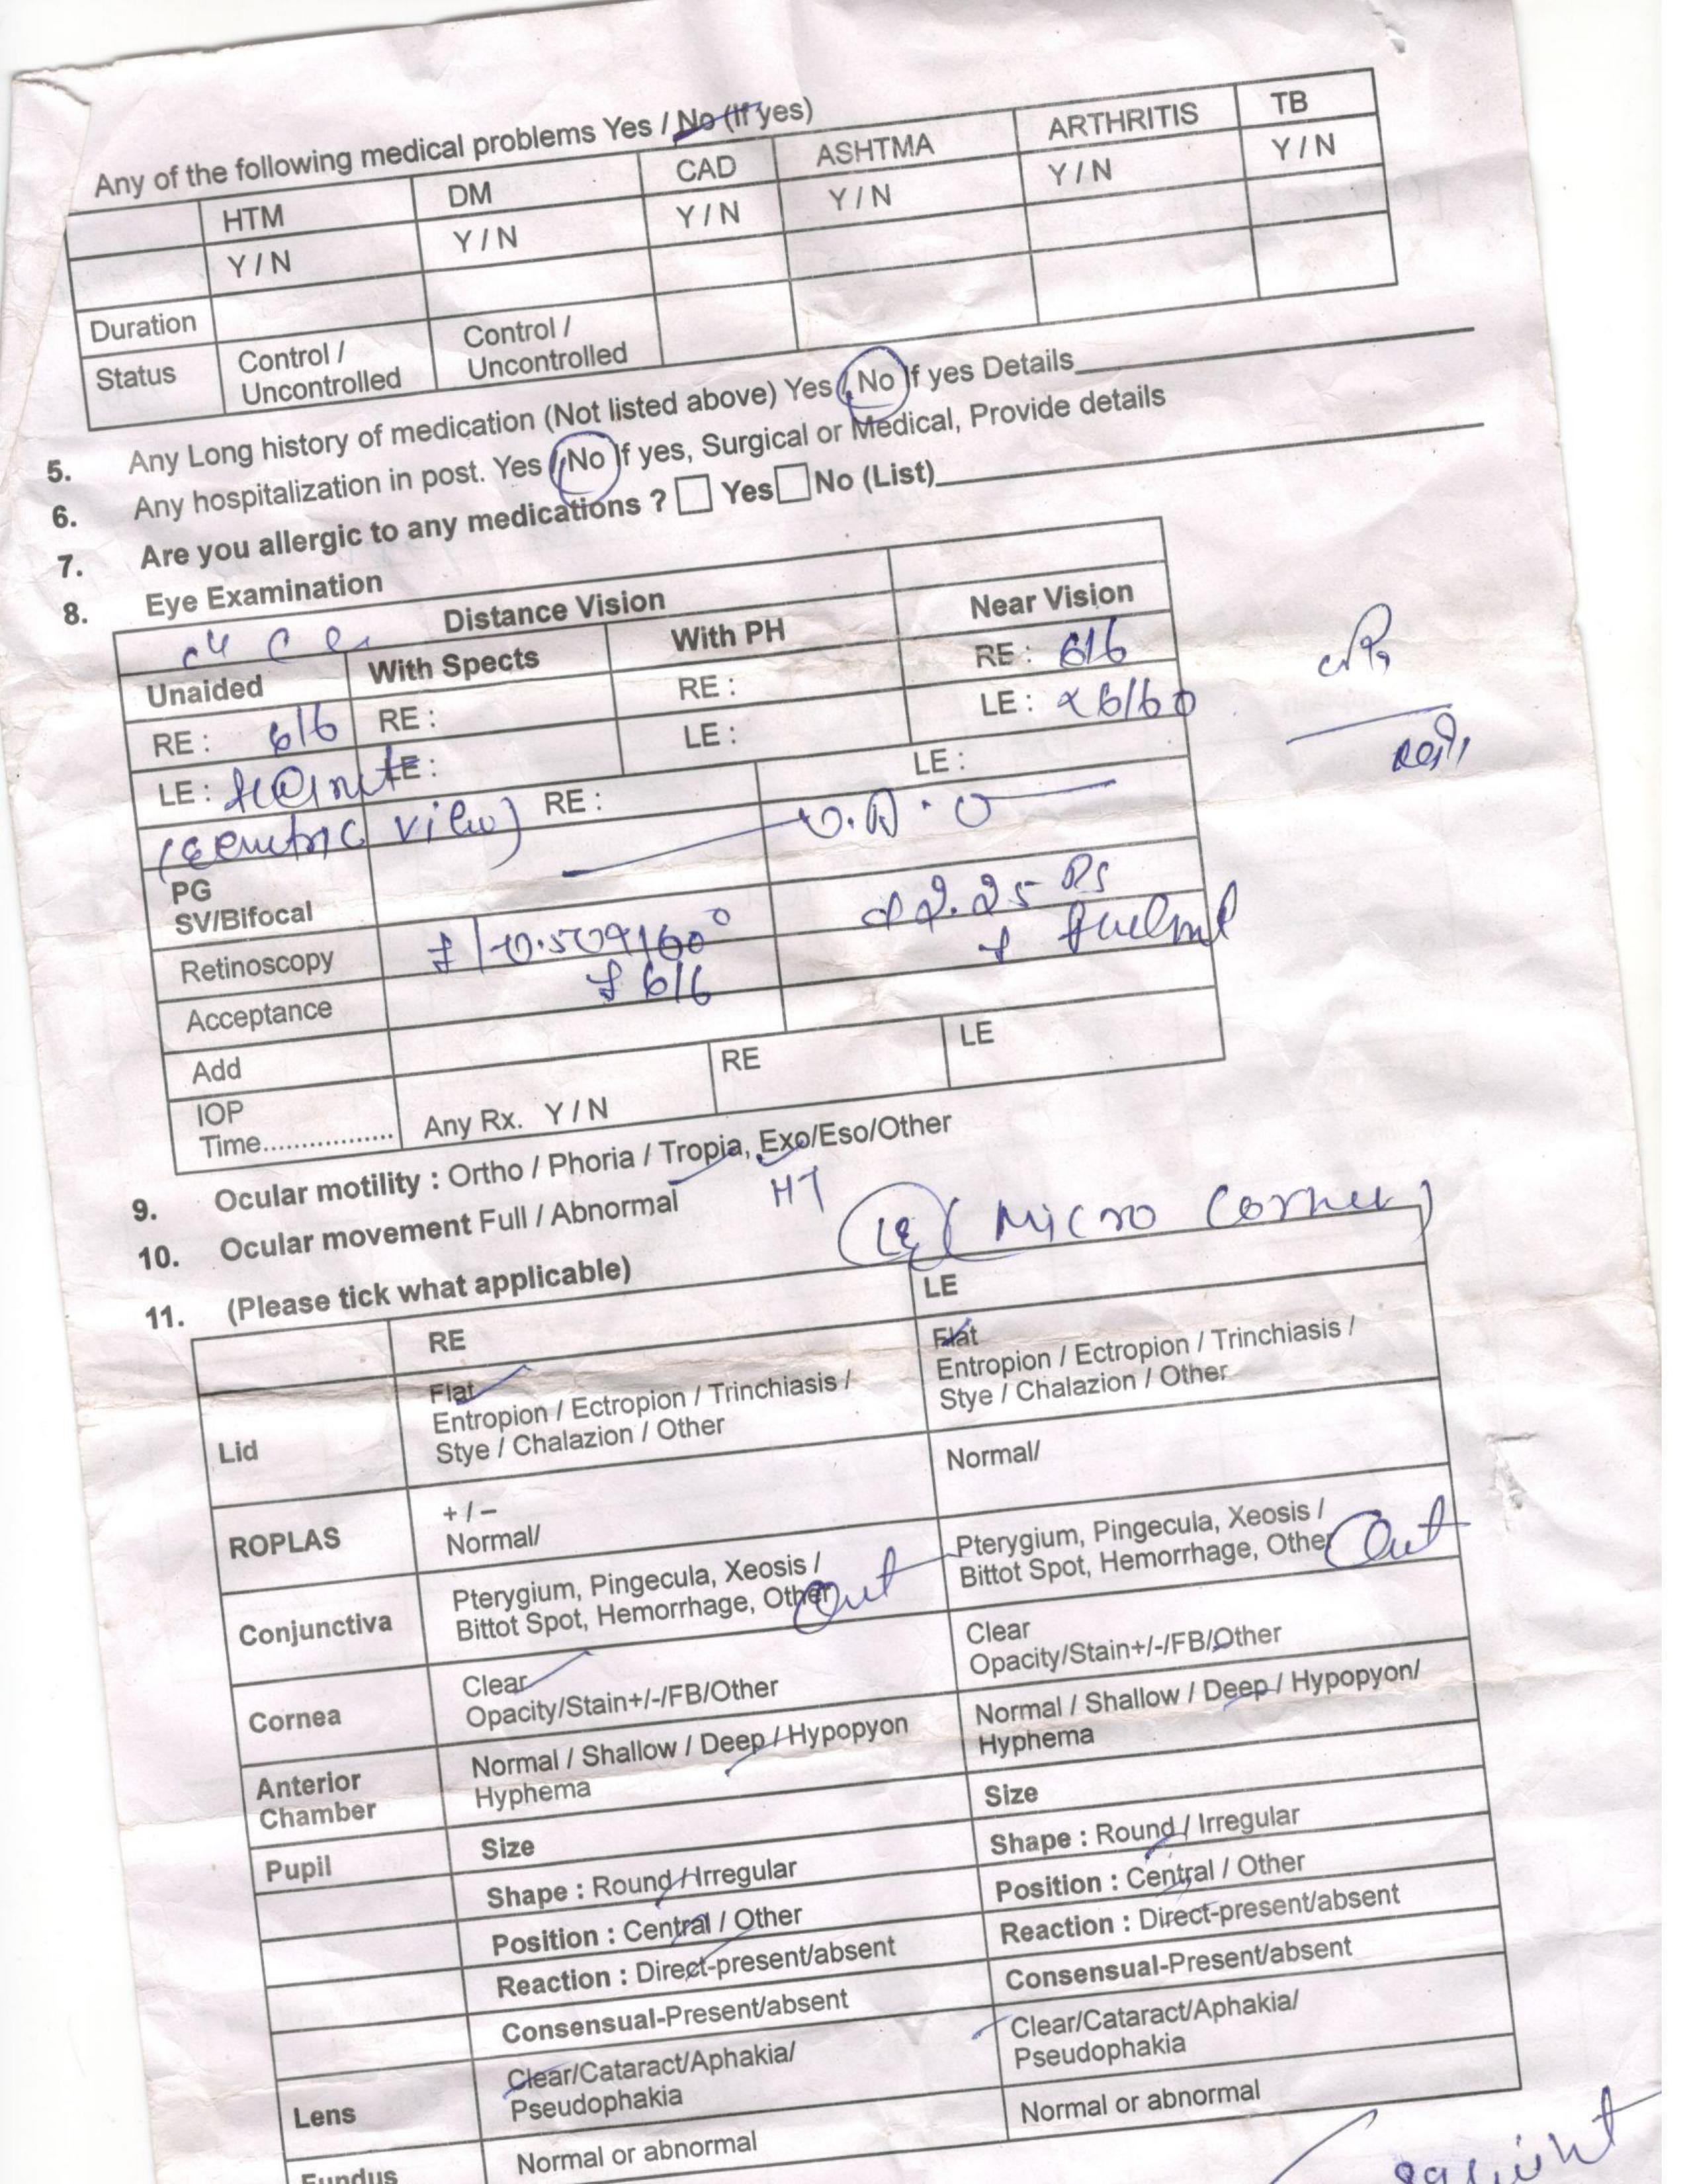 Any of the following medical problems Yes / No (If yes)
HTM DM CAD ASHTMA ARTHRITIS TB
Y / N Y / N Y / N Y / N Y / N Y / N
Duration
Status Control / Uncontrolled Control / Uncontrolled
5. Any Long history of medication (Not listed above) Yes / No If yes Details
6. Any hospitalization in post. Yes / No If yes, Surgical or Medical, Provide details
7. Are you allergic to any medications ? Yes No (List)
8. Eye Examination
Distance Vision Near Vision
Unaided With Spects With PH
RE : 6/6 RE : RE : RE : 6/6
LE : LE : LE : LE : <6/60
view) RE : LE :
PG
SV/Bifocal
Retinoscopy
Acceptance 6/6
Add
IOP
Time................. Any Rx. Y / N RE LE
9. Ocular motility : Ortho / Phoria / Tropia, Exo/Eso/Other
HT
10. Ocular movement Full / Abnormal
LE (Micro Cornea)
11. (Please tick what applicable)
RE LE
Lid
Flat
Entropion / Ectropion / Trinchiasis /
Stye / Chalazion / Other
Flat
Entropion / Ectropion / Trinchiasis /
Stye / Chalazion / Other
ROPLAS
+ / –
Normal/
Normal/
Conjunctiva
Pterygium, Pingecula, Xeosis /
Bittot Spot, Hemorrhage, Other
Pterygium, Pingecula, Xeosis /
Bittot Spot, Hemorrhage, Other
Cornea
Clear
Opacity/Stain+/-/FB/Other
Clear
Opacity/Stain+/-/FB/Other
Anterior
Chamber
Normal / Shallow / Deep / Hypopyon
Hyphema
Normal / Shallow / Deep / Hypopyon/
Hyphema
Pupil
Size
Size
Shape : Round / Irregular
Shape : Round / Irregular
Position : Central / Other
Position : Central / Other
Reaction : Direct-present/absent
Reaction : Direct-present/absent
Consensual-Present/absent
Consensual-Present/absent
Lens
Clear/Cataract/Aphakia/
Pseudophakia
Clear/Cataract/Aphakia/
Pseudophakia
Fundus
Normal or abnormal
Normal or abnormal
squint